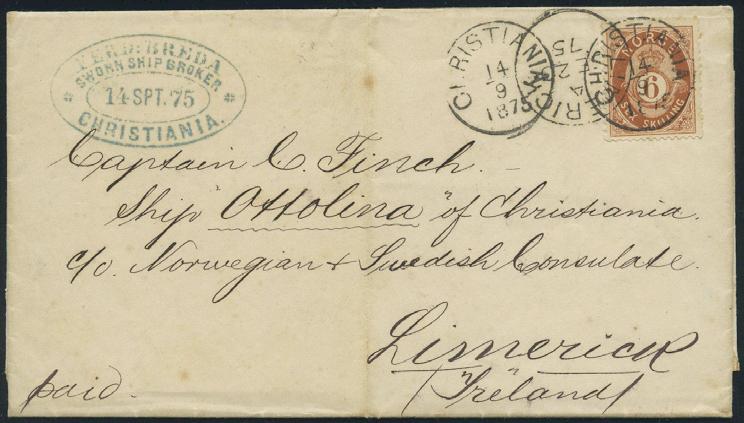 FERD: BREDA
SWORN SHIP BROKER
14 SPT. 75
CHRISTIANIA.
CHRISTIANIA
14
9
1875
75
CHRISTIANIA
14
9
NORGE
6
SEX SKILLING
Captain C. Finch.
Ship "Ottolina" of Christiania.
c/o. Norwegian & Swedish Consulate.
Limerick
(Ireland)
paid.